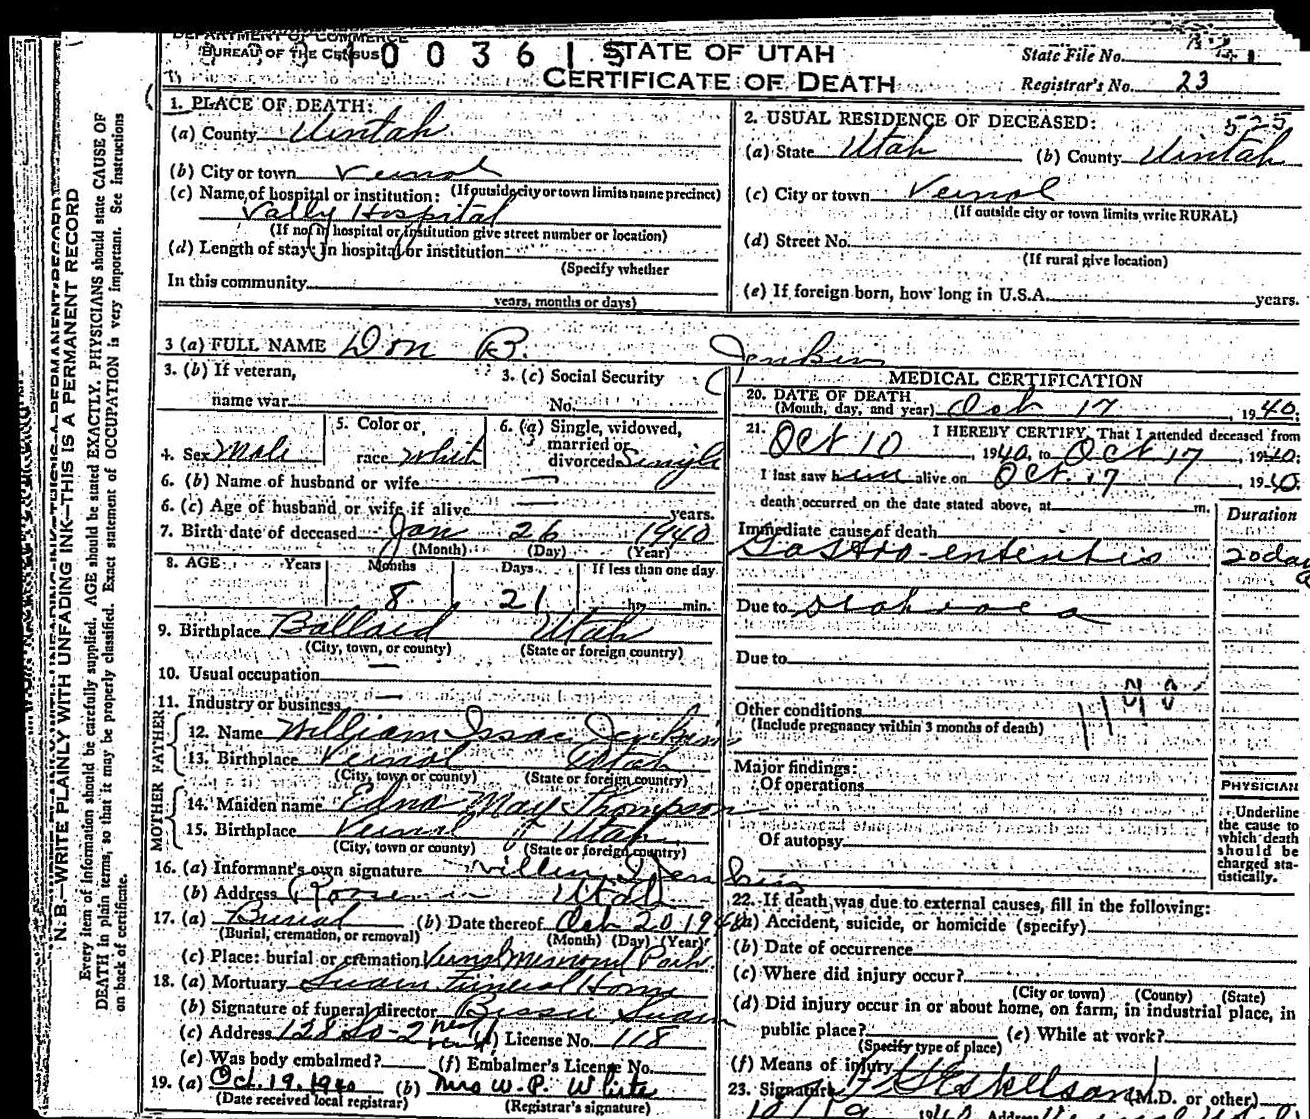 DEPARTMENT OF COMMERCE
BUREAU OF THE Census
0 0 3 6 1 5
STATE OF UTAH
CERTIFICATE OF DEATH
State File No.
Registrar's No. 23
1. PLACE OF DEATH:
(a) County Uintah
(b) City or town Vernal
(If outside city or town limits name precinct)
(c) Name of hospital or institution:
Vally Hospital
(If not in hospital or institution give street number or location)
(d) Length of stay: In hospital or institution
(Specify whether
In this community
years, months or days)
2. USUAL RESIDENCE OF DECEASED: 525
(a) State Utah (b) County Uintah
(c) City or town Vernal
(If outside city or town limits, write RURAL)
(d) Street No.
(If rural give location)
(e) If foreign born, how long in U.S.A. years.
3 (a) FULL NAME Don B. Jenkins
3. (b) If veteran,
name war
3. (c) Social Security
No.
4. Sex Male
5. Color or
race whit
6. (a) Single, widowed,
married or
divorced Single
6. (b) Name of husband or wife —
6. (c) Age of husband or wife if alive — years.
7. Birth date of deceased Jan 26 1940
(Month) (Day) (Year)
8. AGE Years Months Days If less than one day
8 21 hr. min.
9. Birthplace Ballard Utah
(City, town, or county) (State or foreign country)
10. Usual occupation —
11. Industry or business —
FATHER
12. Name William Isac Jenkins
13. Birthplace Vernal Utah
(City, town or county) (State or foreign country)
MOTHER
14. Maiden name Edna May Thompson
15. Birthplace Vernal Utah
(City, town or county) (State or foreign country)
16. (a) Informant's own signature Jenkins
(b) Address Utah
17. (a) Burial (b) Date thereof Oct 20 1940
(Burial, cremation, or removal) (Month) (Day) (Year)
(c) Place: burial or cremation Vernal Memorial Park
18. (a) Mortuary Swain Funeral Home
(b) Signature of funeral director Bessie Swain
(c) Address 128 So-2 (d) License No. 118
(e) Was body embalmed? (f) Embalmer's License No.
19. (a) Oct. 19. 1940 (b) Mrs W. P. White
(Date received local registrar) (Registrar's signature)
MEDICAL CERTIFICATION
20. DATE OF DEATH
(Month, day, and year) Oct 17, 1940.
21. I HEREBY CERTIFY, That I attended deceased from
Oct 10, 1940, to Oct 17, 1940;
I last saw him alive on Oct. 17 1940.
death occurred on the date stated above, at m.
Duration
Immediate cause of death
Gastro-enteritis 20 days
Due to
Due to
Other conditions
(Include pregnancy within 3 months of death)
Major findings:
Of operations
Of autopsy
PHYSICIAN
Underline
the cause to
which death
should be
charged sta-
tistically.
22. If death was due to external causes, fill in the following:
(a) Accident, suicide, or homicide (specify)
(b) Date of occurrence
(c) Where did injury occur?
(City or town) (County) (State)
(d) Did injury occur in or about home, on farm, in industrial place, in
public place? (e) While at work?
(Specify type of place)
(f) Means of injury
23. Signature Eskelson (M.D. or other)
N. B.—WRITE PLAINLY WITH UNFADING INK—THIS IS A PERMANENT RECORD
Every item of information should be carefully supplied. AGE should be stated EXACTLY. PHYSICIANS should state CAUSE OF
DEATH in plain terms, so that it may be properly classified. Exact statement of OCCUPATION is very important. See instructions
on back of certificate.